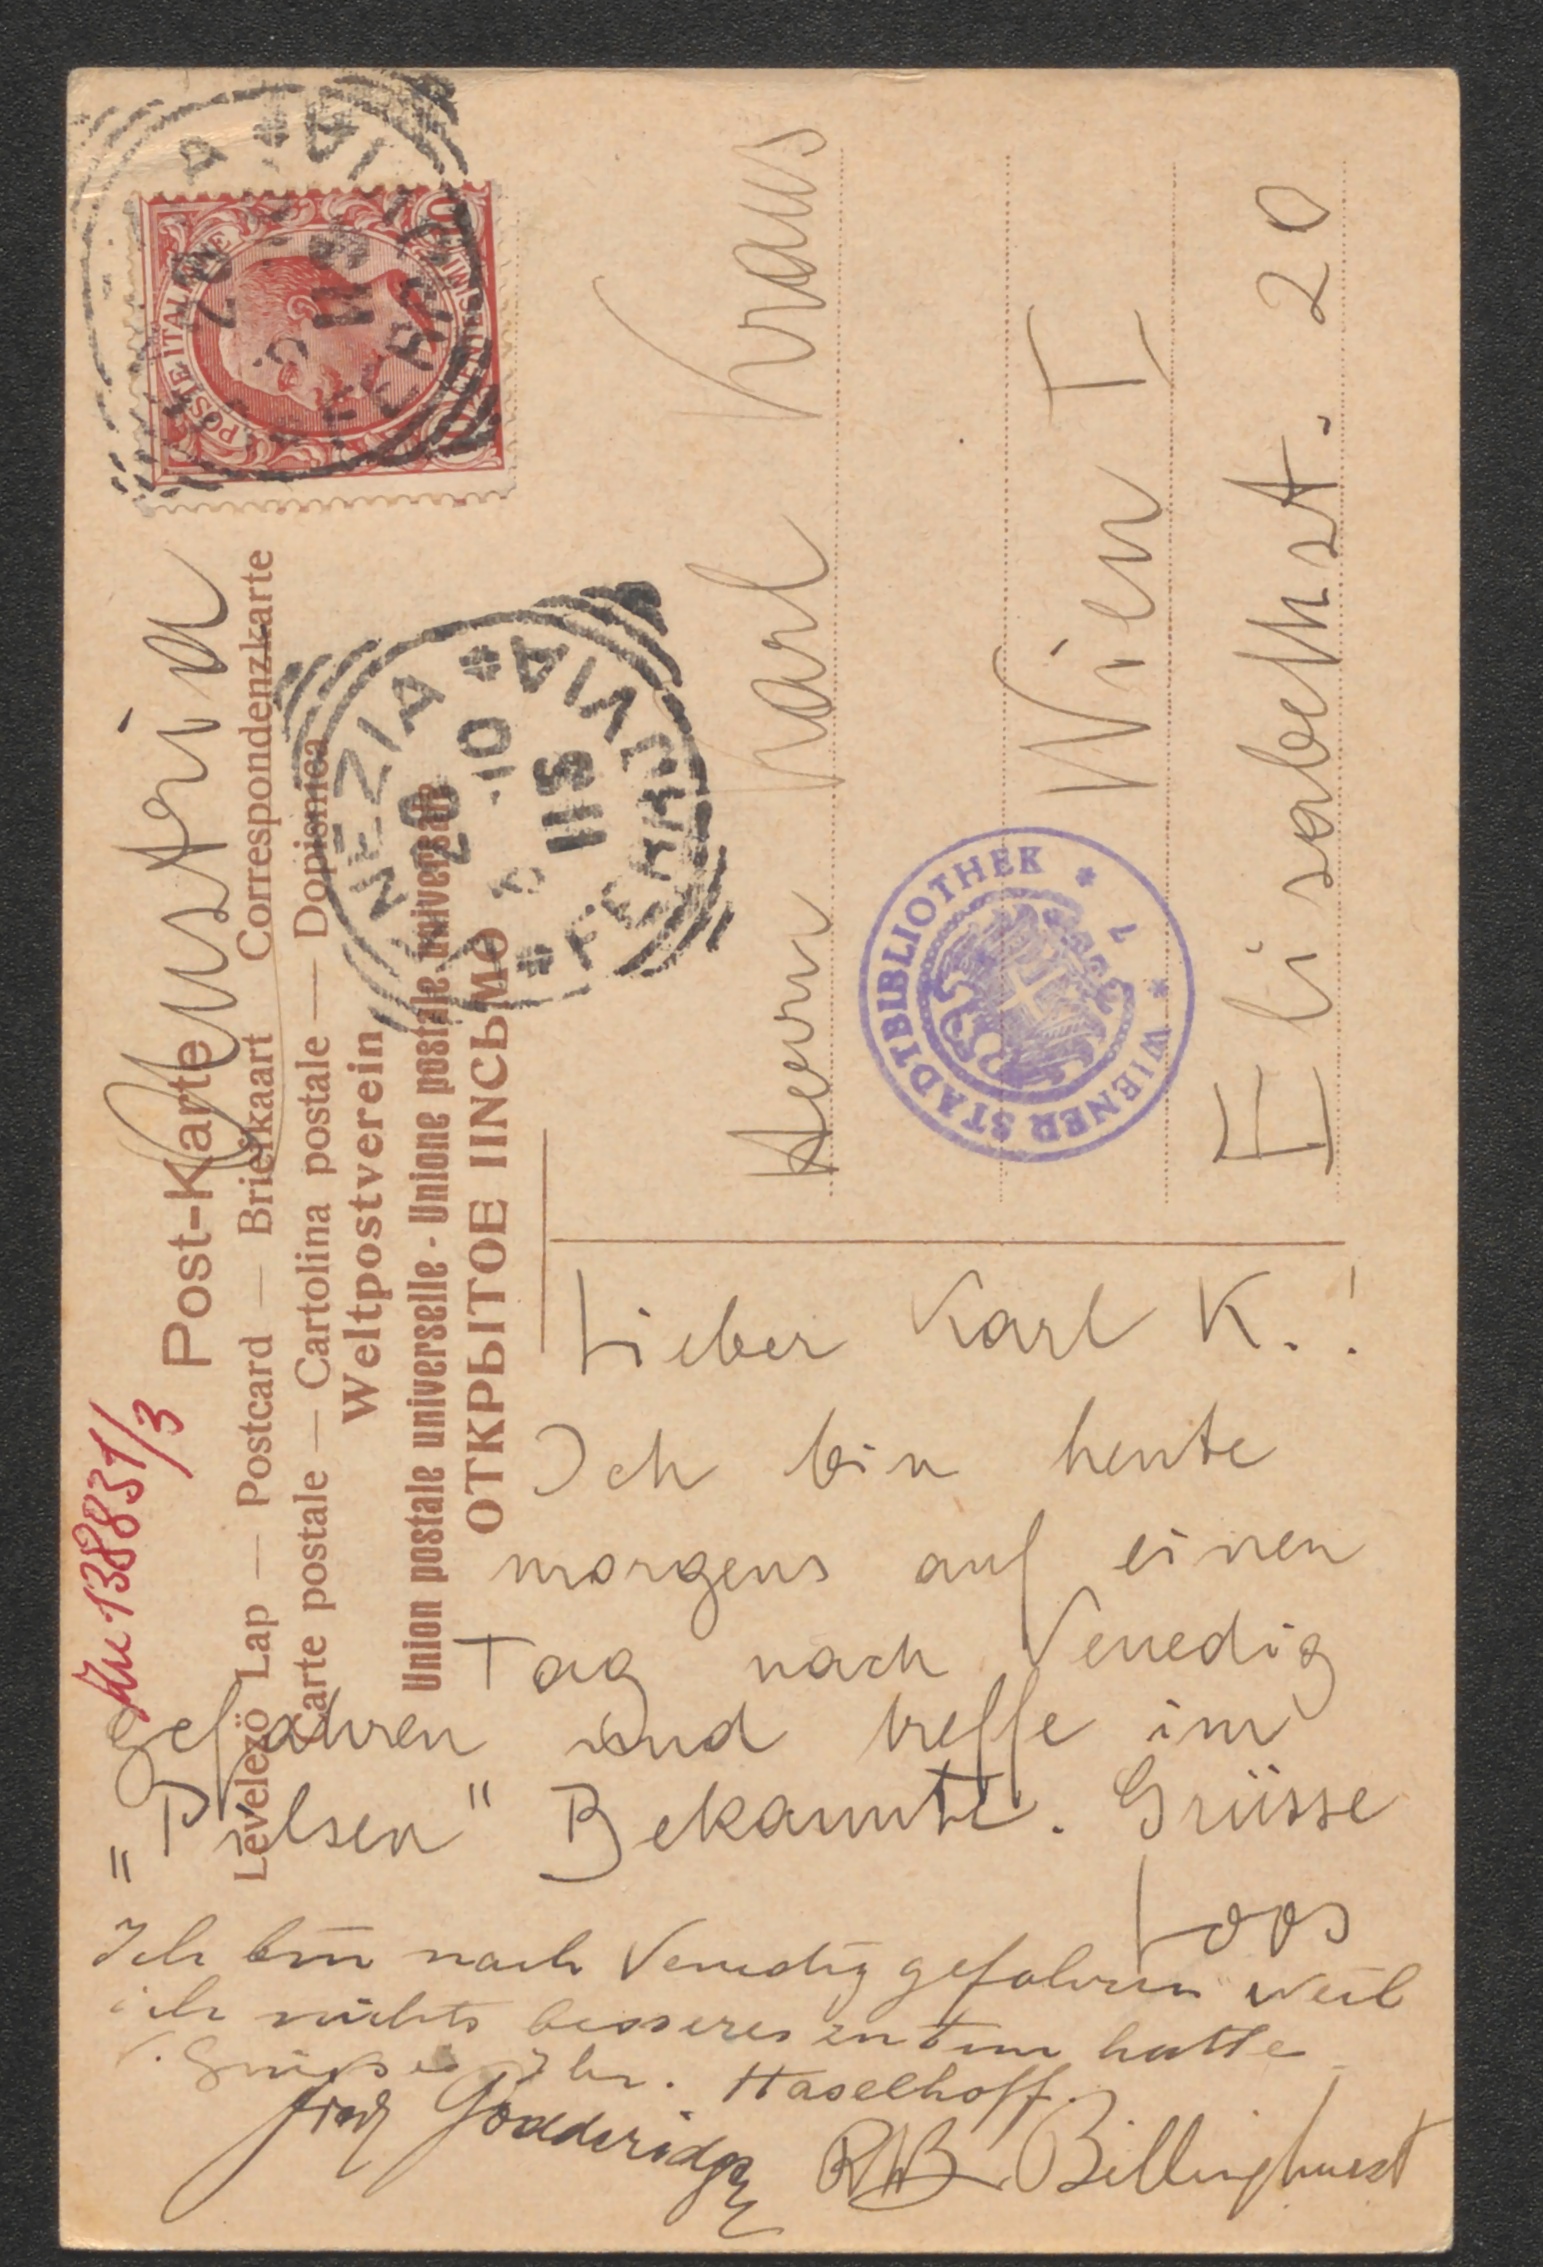 Post-Karte
Austria
Levelező Lap — Postcard — Briefkaart Correspondenzkarte
Carte postale — Cartolina postale — Dopisnica
Weltpostverein
Union postale universelle - Unione postale universale
ОТКРЫТОЕ ПИСЬМО
POSTE ITALIANE
CENTESIMI 10
NEZIA
20 10
11 S
FERROVIA
Herrn Karl Kraus
Wien I
Elisabethst. 20
WIENER STADTBIBLIOTHEK
138831/3
Lieber Karl K.!
Ich bin heute
morgens auf einen
Tag nach Venedig
gefahren und treffe im
"Pilsen" Bekannte. Grüsse
Loos
Ich bin nach Venedig gefahren weil
ich nichts besseres zu tun hatte
Grüsse Ihr. Haselhoff.
Godderidge Billinghurst